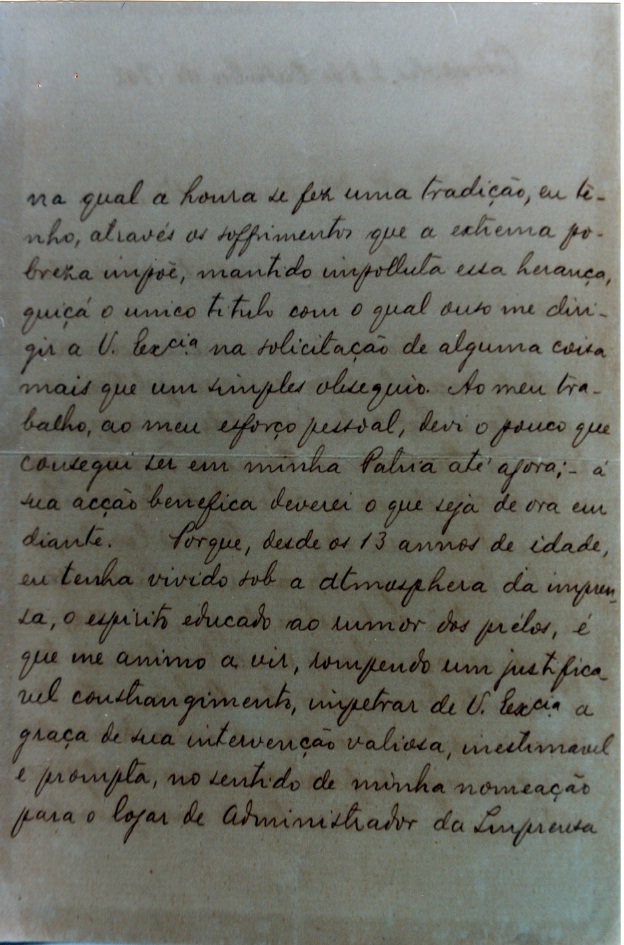 na qual a honra se fez uma tradição, eu te-
nho, através os soffrimentos que a extrema po-
breza impõe, mantido impolluta essa herança,
quiçá o unico titulo com o qual ouso me diri-
gir a V. Excia. na solicitação de alguma coisa
mais que um simples obsequio. Ao meu tra-
balho, ao meu esforço pessoal, devi o pouco que
consegui ser em minha Patria até agora; - á
sua acção benefica deverei o que seja de ora em
diante. Porque, desde os 13 annos de idade,
eu tenha vivido sob a atmosphera da impren-
sa, o espirito educado ao rumor dos prélos, é
que me animo a vir, rompendo um justifica
vel constrangimento, impetrar de V. Excia. a
graça de sua intervenção valiosa, inestimavel
e prompta, no sentido de minha nomeação
para o logar de Administrador da Imprensa